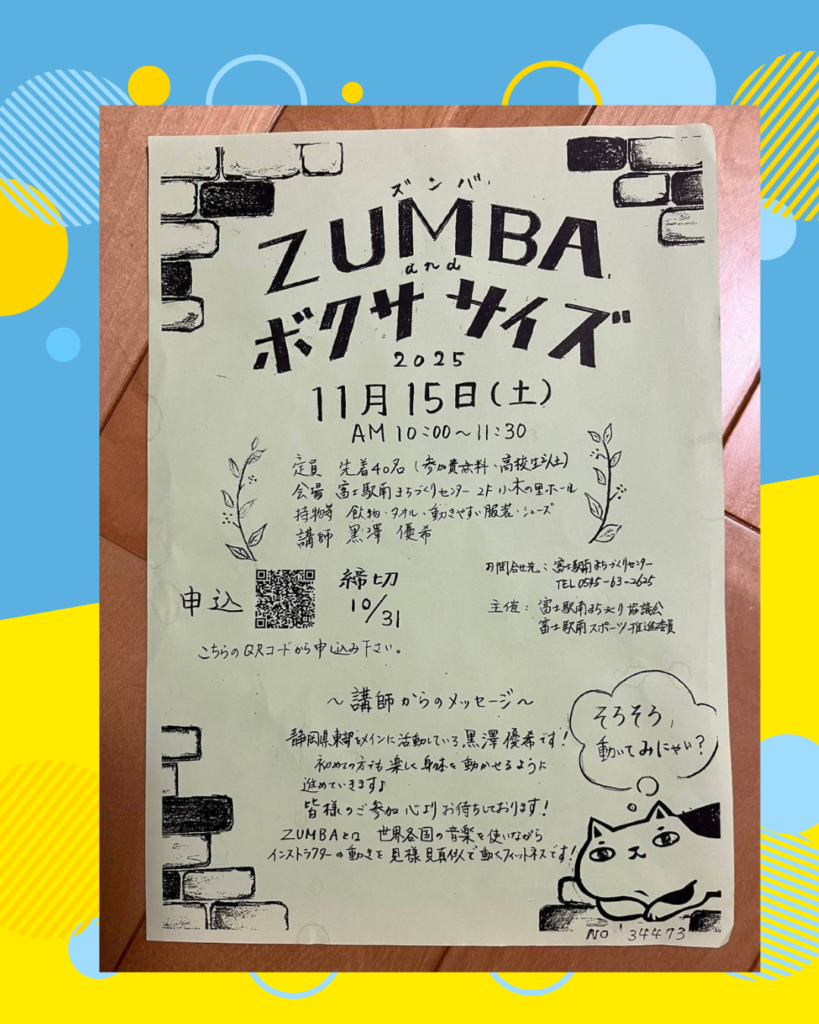 ズンバ
ZUMBA
and
ボクササイズ
2025
11月15日(土)
AM 10:00〜11:30
定員 先着40名(参加費無料・高校生以上)
会場 富士駅南まちづくりセンター 2F 小木の里ホール
持物等 飲物・タオル・動きやすい服装・シューズ
講師 黒澤 優希
お問合せ先:富士駅南まちづくりセンター
TEL 0545-63-2625
申込
締切
10/31
主催:富士駅南まちづくり協議会
富士駅南スポーツ推進委員
こちらのQRコードから申込み下さい。
〜講師からのメッセージ〜
静岡県東部をメインに活動している黒澤優希です!
初めての方でも楽しく身体を動かせるように
進めていきます♪
皆様のご参加心よりお待ちしております!
ZUMBAとは 世界各国の音楽を使いながら
インストラクターの動きを見様見真似で動くフィットネスです!
そろそろ、
動いてみにゃい?
NO 34473